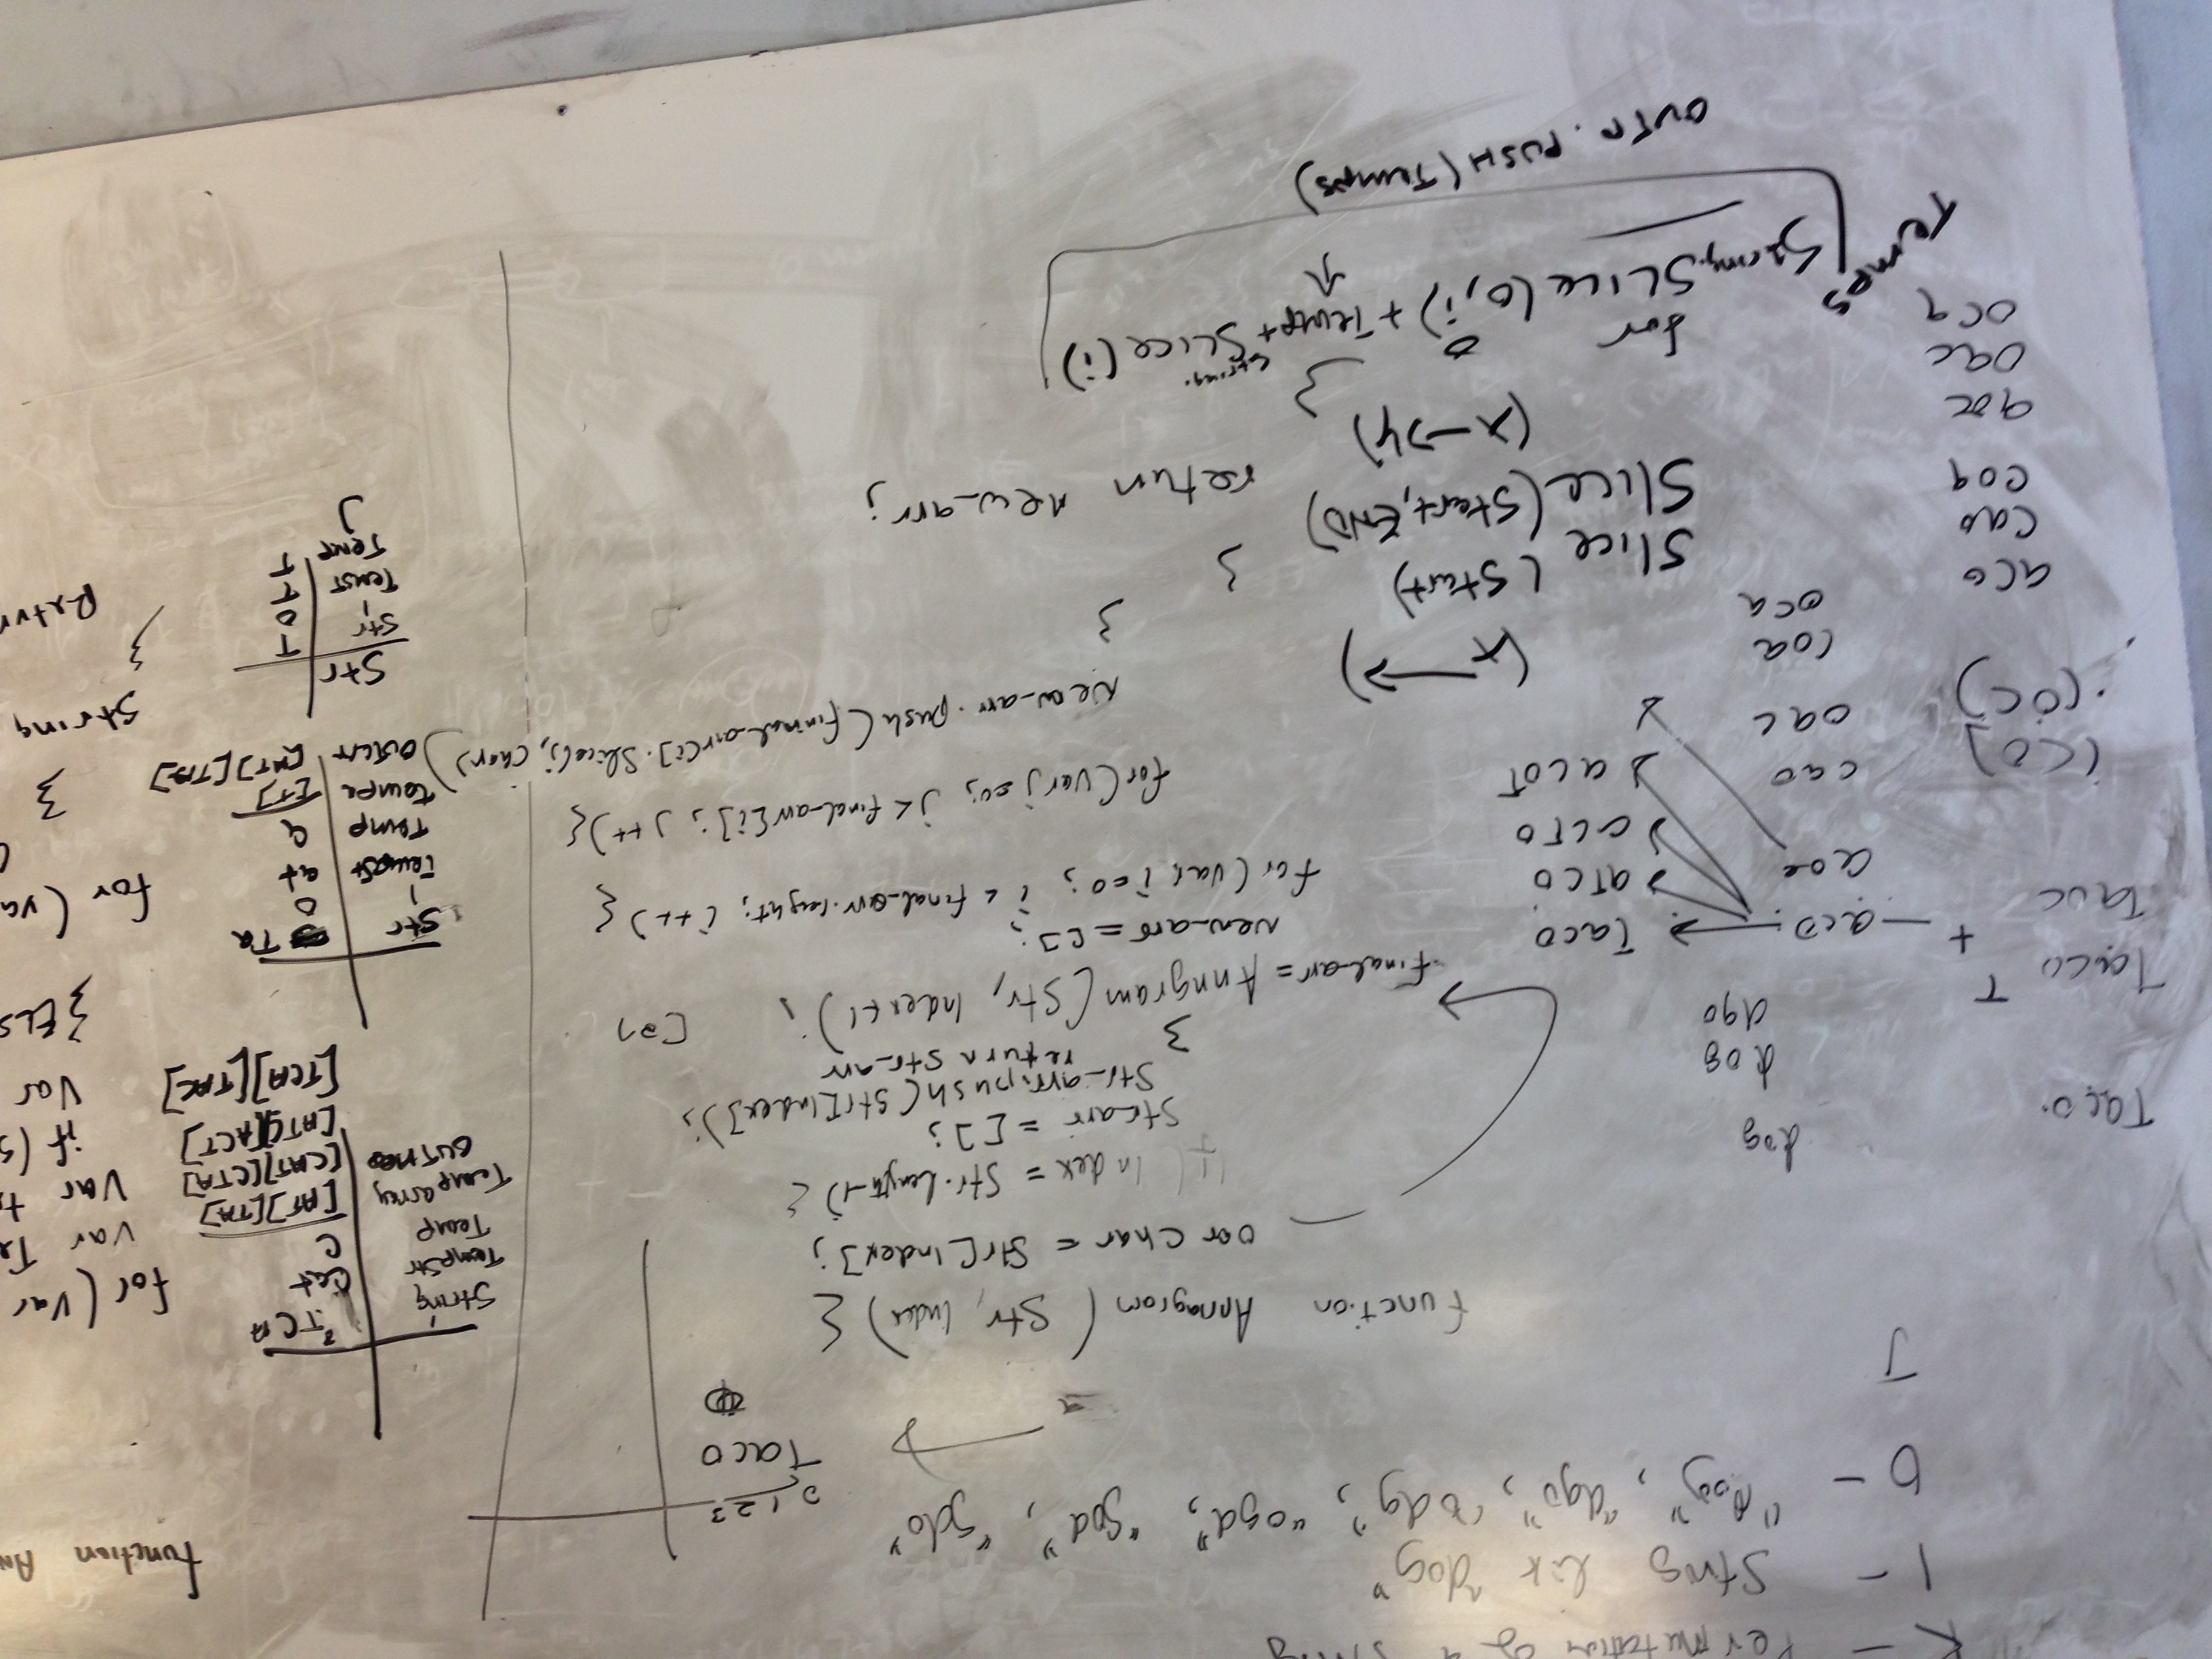 K - Permutation of a String
I - Strng lik "dog"
O - "dog", "dgo", "odg", "ogd", "god", "gdo"
J
0 1 2 3
Taco
function Annagram ( Str, Index) {
var char = Str[Index];
if( Index = Str.length-1) {
Str_arr = [ ];
Str_arr.push(Str[Index]);
return Str_arr
}
final_arr = Anngram (Str, Index+1) ;
New_arr = [ ];
for (var i=0; i < final_arr.lenght; i++) {
for(var j=0; j< final_arr[i]; j++){
New_arr.push(finnal_arr[i].Slice(j, char))
}
}
return new_arr;
}
dog
dog
dgo
Taco
Taco T
Taoc
+ — aco
Taco
aTco
acTo
acoT
(CO)
(OC)
cao
oac
coa
oca
aco
cao
coa
aoc
oac
oca
(x → )
Slice (Start)
Slice (Start, END)
(x → y)
for
Temps
String.Slice(0,i) + Temp + String.Slice(i)
OUTA.PUSH(Temps)
function An
String
TCA
i
TempStr Cat
Temp C
Temp array [AT][TA]
[CAT][CTA]
[ATC][ACT]
[TCA][TAC]
for (var
var Te
Var t
if (s
Var
}ELS
Str Ta
i 0
TempSt at
Temp a
tempa [T]
outarr [AT][TA]
for (va
}
String
}
Retur
Str
Str T
i 0
TemST T
Temp T
J